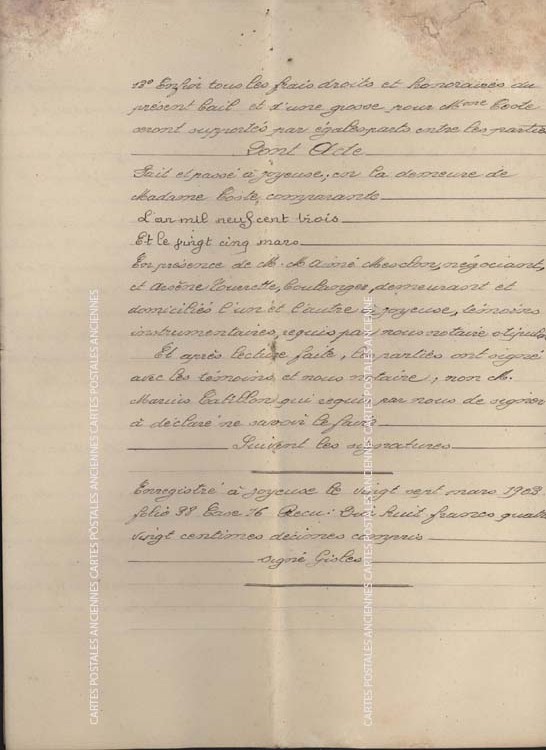 18° Enfin tous les frais droits et honoraires du
présent bail et d'une grosse pour Mme Coste
seront supportés par égales parts entre les parties
Dont Acte
Fait et passé à Joyeuse, en la demeure de
Madame Coste, comparante
L'an mil neuf cent trois
Et le vingt cinq mars
En présence de M. M. Aimé Mesclon, négociant,
et Arsène Tourette, boulanger, demeurant et
domiciliés l'un et l'autre à Joyeuse, témoins
instrumentaires, requis par nous notaire
Et après lecture faite, les parties ont signé
avec les témoins et nous notaire, non M.
Marius qui requis par nous de signer
a déclaré ne savoir le faire
Suivent les signatures
Enregistré à Joyeuse le vingt sept mars 1903
folio 98 Case 16 Reçu: Dix huit francs quatre
vingt centimes décimes compris
signé Gisles
CARTES POSTALES ANCIENNES CARTES POSTALES ANCIENNES CARTES POSTALES ANCIENNES
CARTES POSTALES ANCIENNES CARTES POSTALES ANCIENNES CARTES POSTALES ANCIENNES